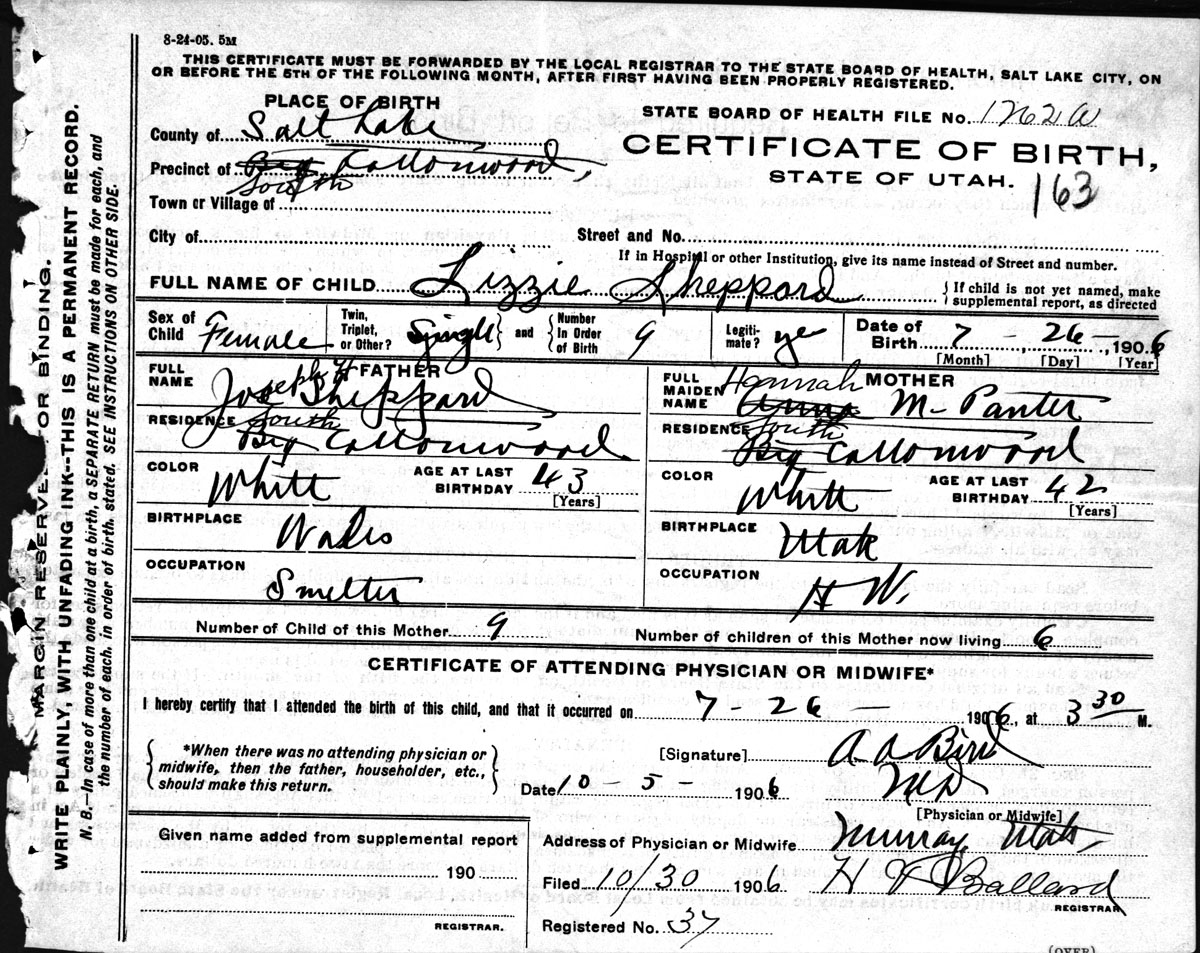 8-24-05. 5M
THIS CERTIFICATE MUST BE FORWARDED BY THE LOCAL REGISTRAR TO THE STATE BOARD OF HEALTH, SALT LAKE CITY, ON
OR BEFORE THE 5TH OF THE FOLLOWING MONTH, AFTER FIRST HAVING BEEN PROPERLY REGISTERED.
PLACE OF BIRTH
County of Salt Lake
Precinct of Big Cottonwood,
South
Town or Village of
City of
STATE BOARD OF HEALTH FILE No.
CERTIFICATE OF BIRTH,
STATE OF UTAH. 163
Street and No.
If in Hospital or other Institution, give its name instead of Street and number.
FULL NAME OF CHILD Lizzie Sheppard { If child is not yet named, make
supplemental report, as directed
Sex of Child Female
Twin, Triplet, or Other? Single and { Number In Order of Birth 9
Legiti-mate? yes
Date of Birth 7 - 26 -, 1906
[Month] [Day] [Year]
FATHER
FULL NAME Joseph H Sheppard
RESIDENCE South
Big Cottonwood
COLOR White AGE AT LAST BIRTHDAY 43
[Years]
BIRTHPLACE Wales
OCCUPATION Smelter
MOTHER
FULL MAIDEN NAME Hannah
Anna M Panter
RESIDENCE South
Big Cottonwood
COLOR White AGE AT LAST BIRTHDAY 42
[Years]
BIRTHPLACE Utah
OCCUPATION H W.
Number of Child of this Mother 9 Number of children of this Mother now living 6
CERTIFICATE OF ATTENDING PHYSICIAN OR MIDWIFE*
I hereby certify that I attended the birth of this child, and that it occurred on 7 - 26 1906, at 3 30 M.
{ *When there was no attending physician or
midwife, then the father, householder, etc.,
should make this return. }
[Signature] A A Bird
Date 10 - 5 - 1906 MD
[Physician or Midwife]
Address of Physician or Midwife Murray Utah
Filed 10/30 1906 H J Ballard
REGISTRAR
Registered No. 37
Given name added from supplemental report
190
REGISTRAR.
(OVER)
MARGIN RESERVE OR BINDING.
WRITE PLAINLY, WITH UNFADING INK--THIS IS A PERMANENT RECORD.
N. B.—In case of more than one child at a birth, a SEPARATE RETURN must be made for each, and
the number of each, in order of birth, stated. SEE INSTRUCTIONS ON OTHER SIDE.